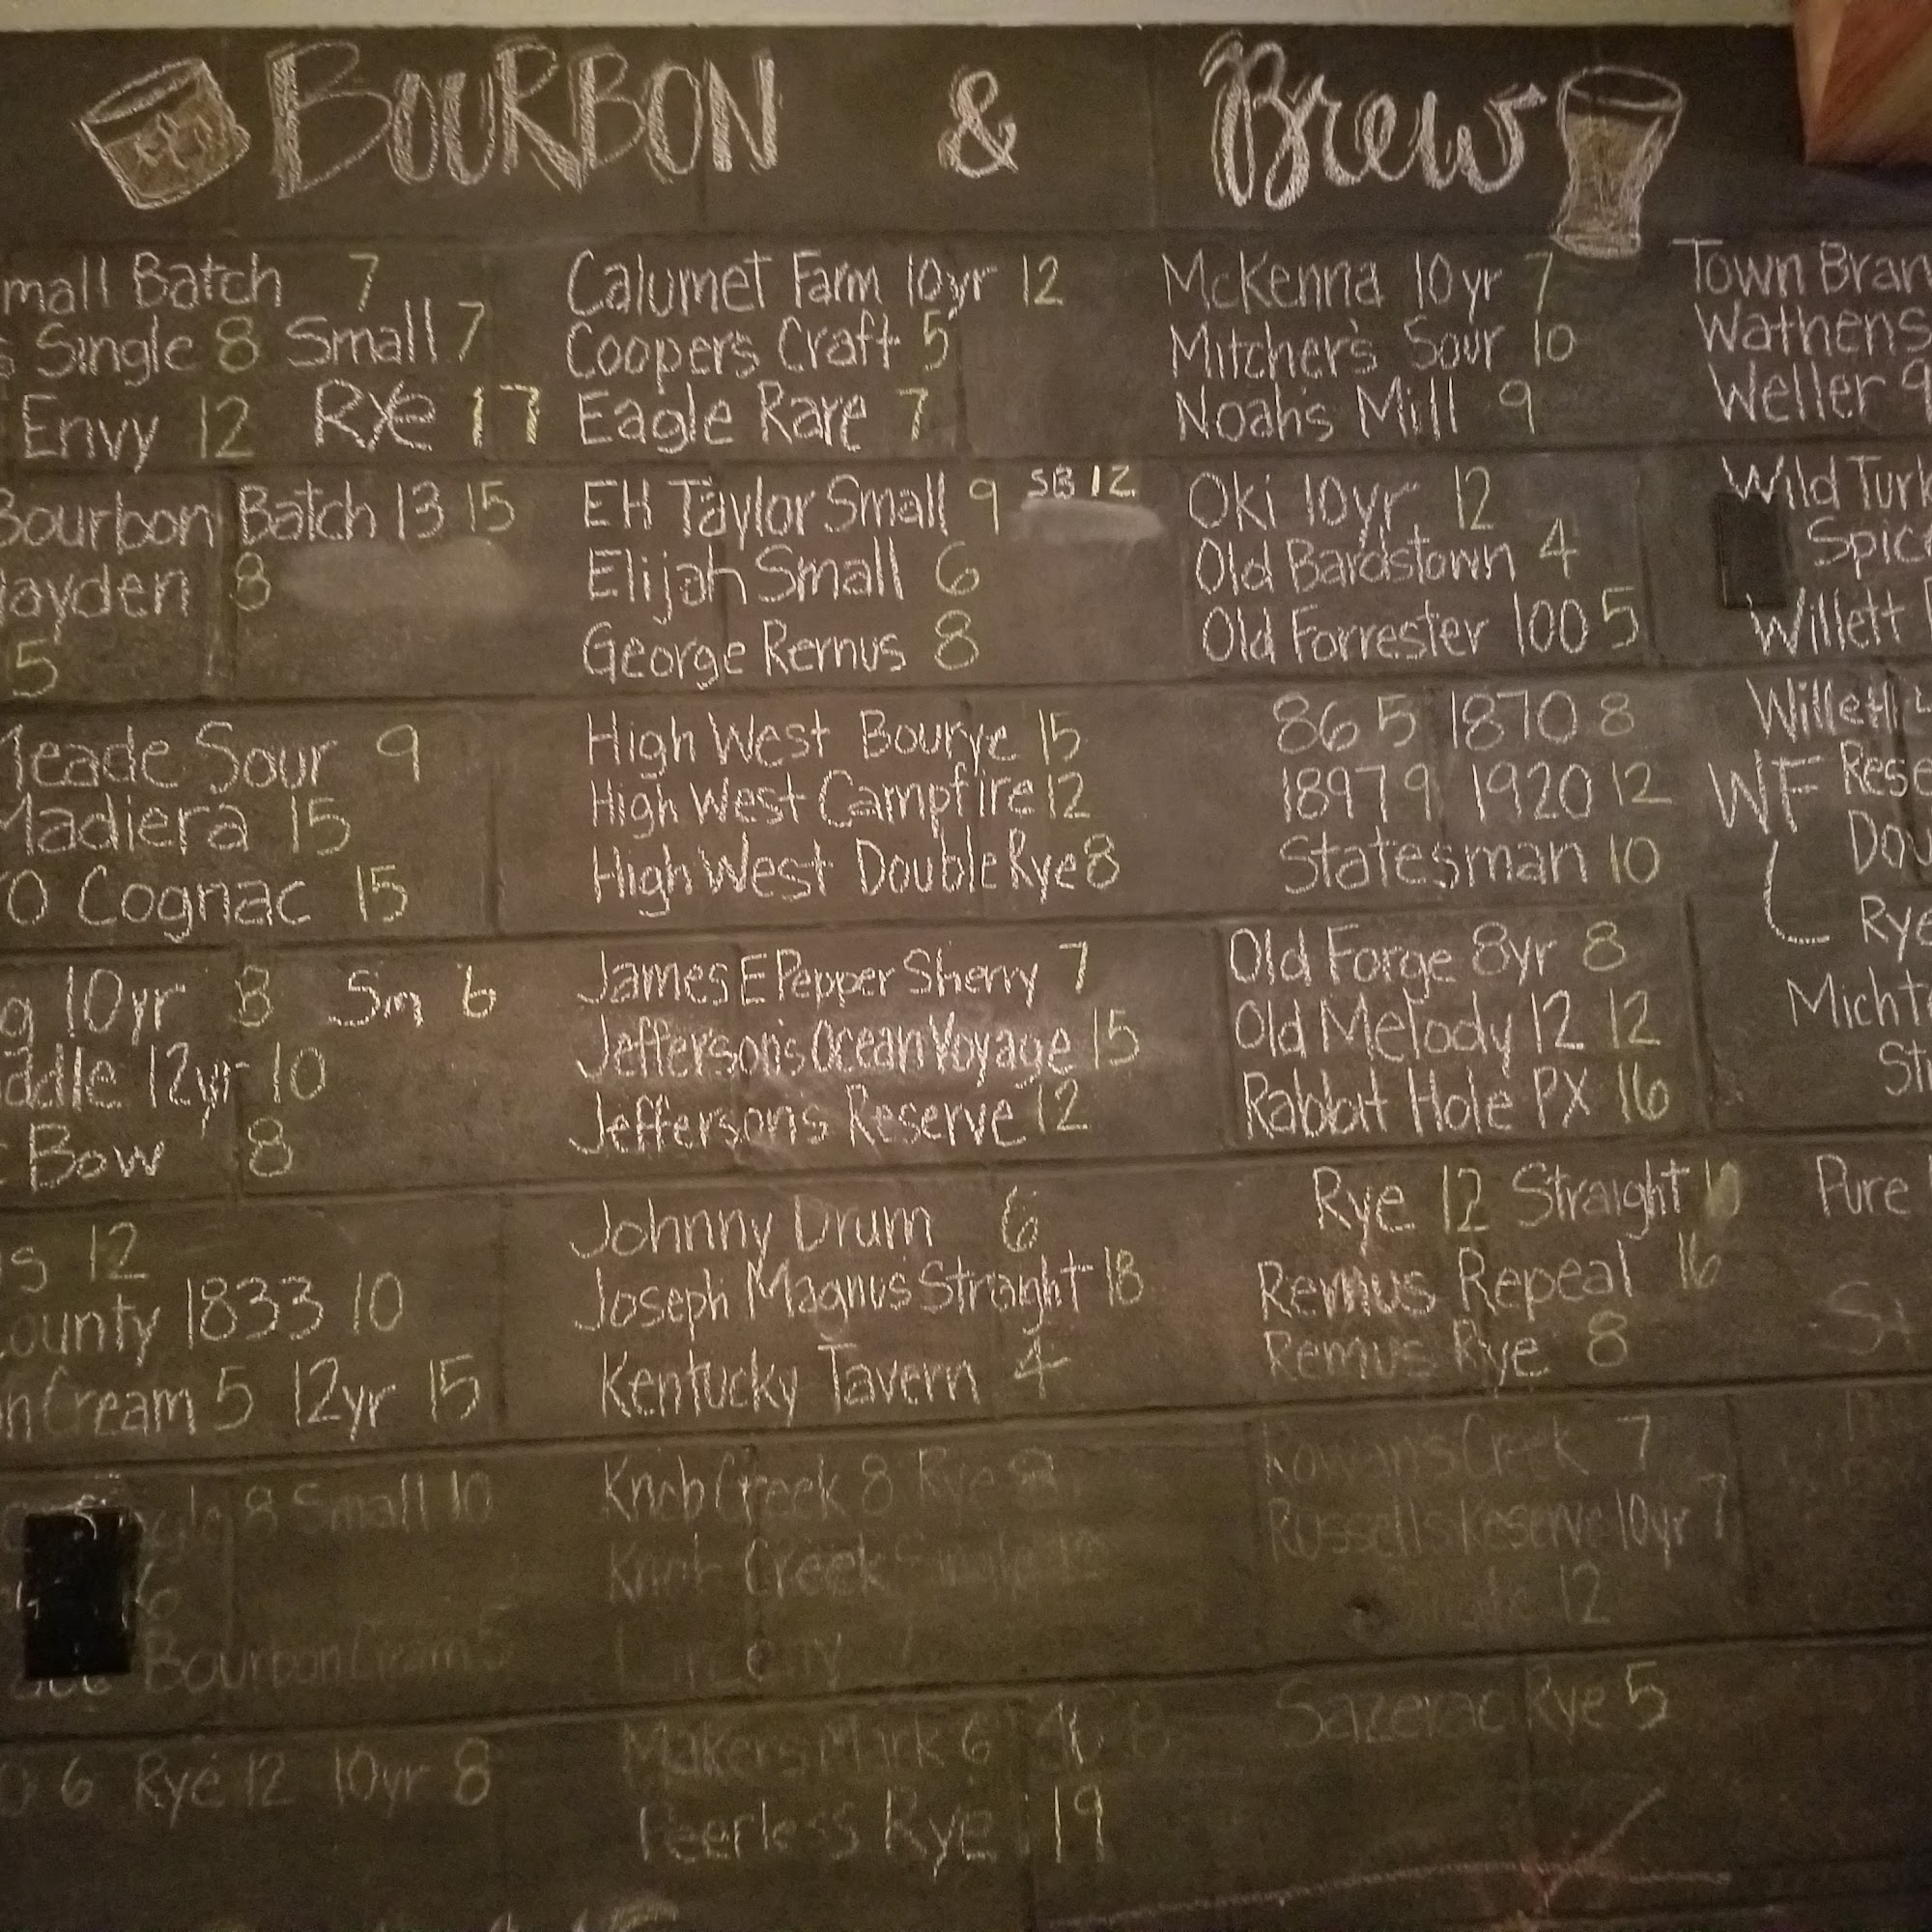 BOURBON & Brew
mall Batch 7
Single 8 Small 7
Envy 12 Rye 17
Bourbon Batch 13 15
ayden 8
5
Meade Sour 9
Madiera 15
O Cognac 15
g 10yr 8 Sm 6
addle 12yr 10
Bow 8
s 12
ounty 1833 10
nCream 5 12yr 15
8 Small 10
6
Bourbon Cream 5
6 Rye 12 10yr 8
Calumet Farm 10yr 12
Coopers Craft 5
Eagle Rare 7
EH Taylor Small 9 SB 12
Elijah Small 6
George Remus 8
High West Bourye 15
High West Campfire 12
High West Double Rye 8
James E Pepper Sherry 7
Jefferson's Ocean Voyage 15
Jeffersons Reserve 12
Johnny Drum 6
Joseph Magnus Straight 18
Kentucky Tavern 4
Knob Creek 8 Rye 8
Knob Creek
Makers Mark 6
Peerless Rye 19
McKenna 10yr 7
Mitcher's Sour 10
Noah's Mill 9
Oki 10yr 12
Old Bardstown 4
Old Forrester 100 5
86 5 1870 8
1897 9 1920 12
Statesman 10
Old Forge 8yr 8
Old Melody 12 12
Rabbit Hole PX 16
Rye 12 Straight 10
Remus Repeal 16
Remus Rye 8
Rowan's Creek 7
Russell's Reserve 10yr 7
12
Sazerac Rye 5
Town Bran
Wathens
Weller 9
Wild Turk
Spic
Willett
Willett
WF Rese
Dou
Rye
Micht
St
Pure
St